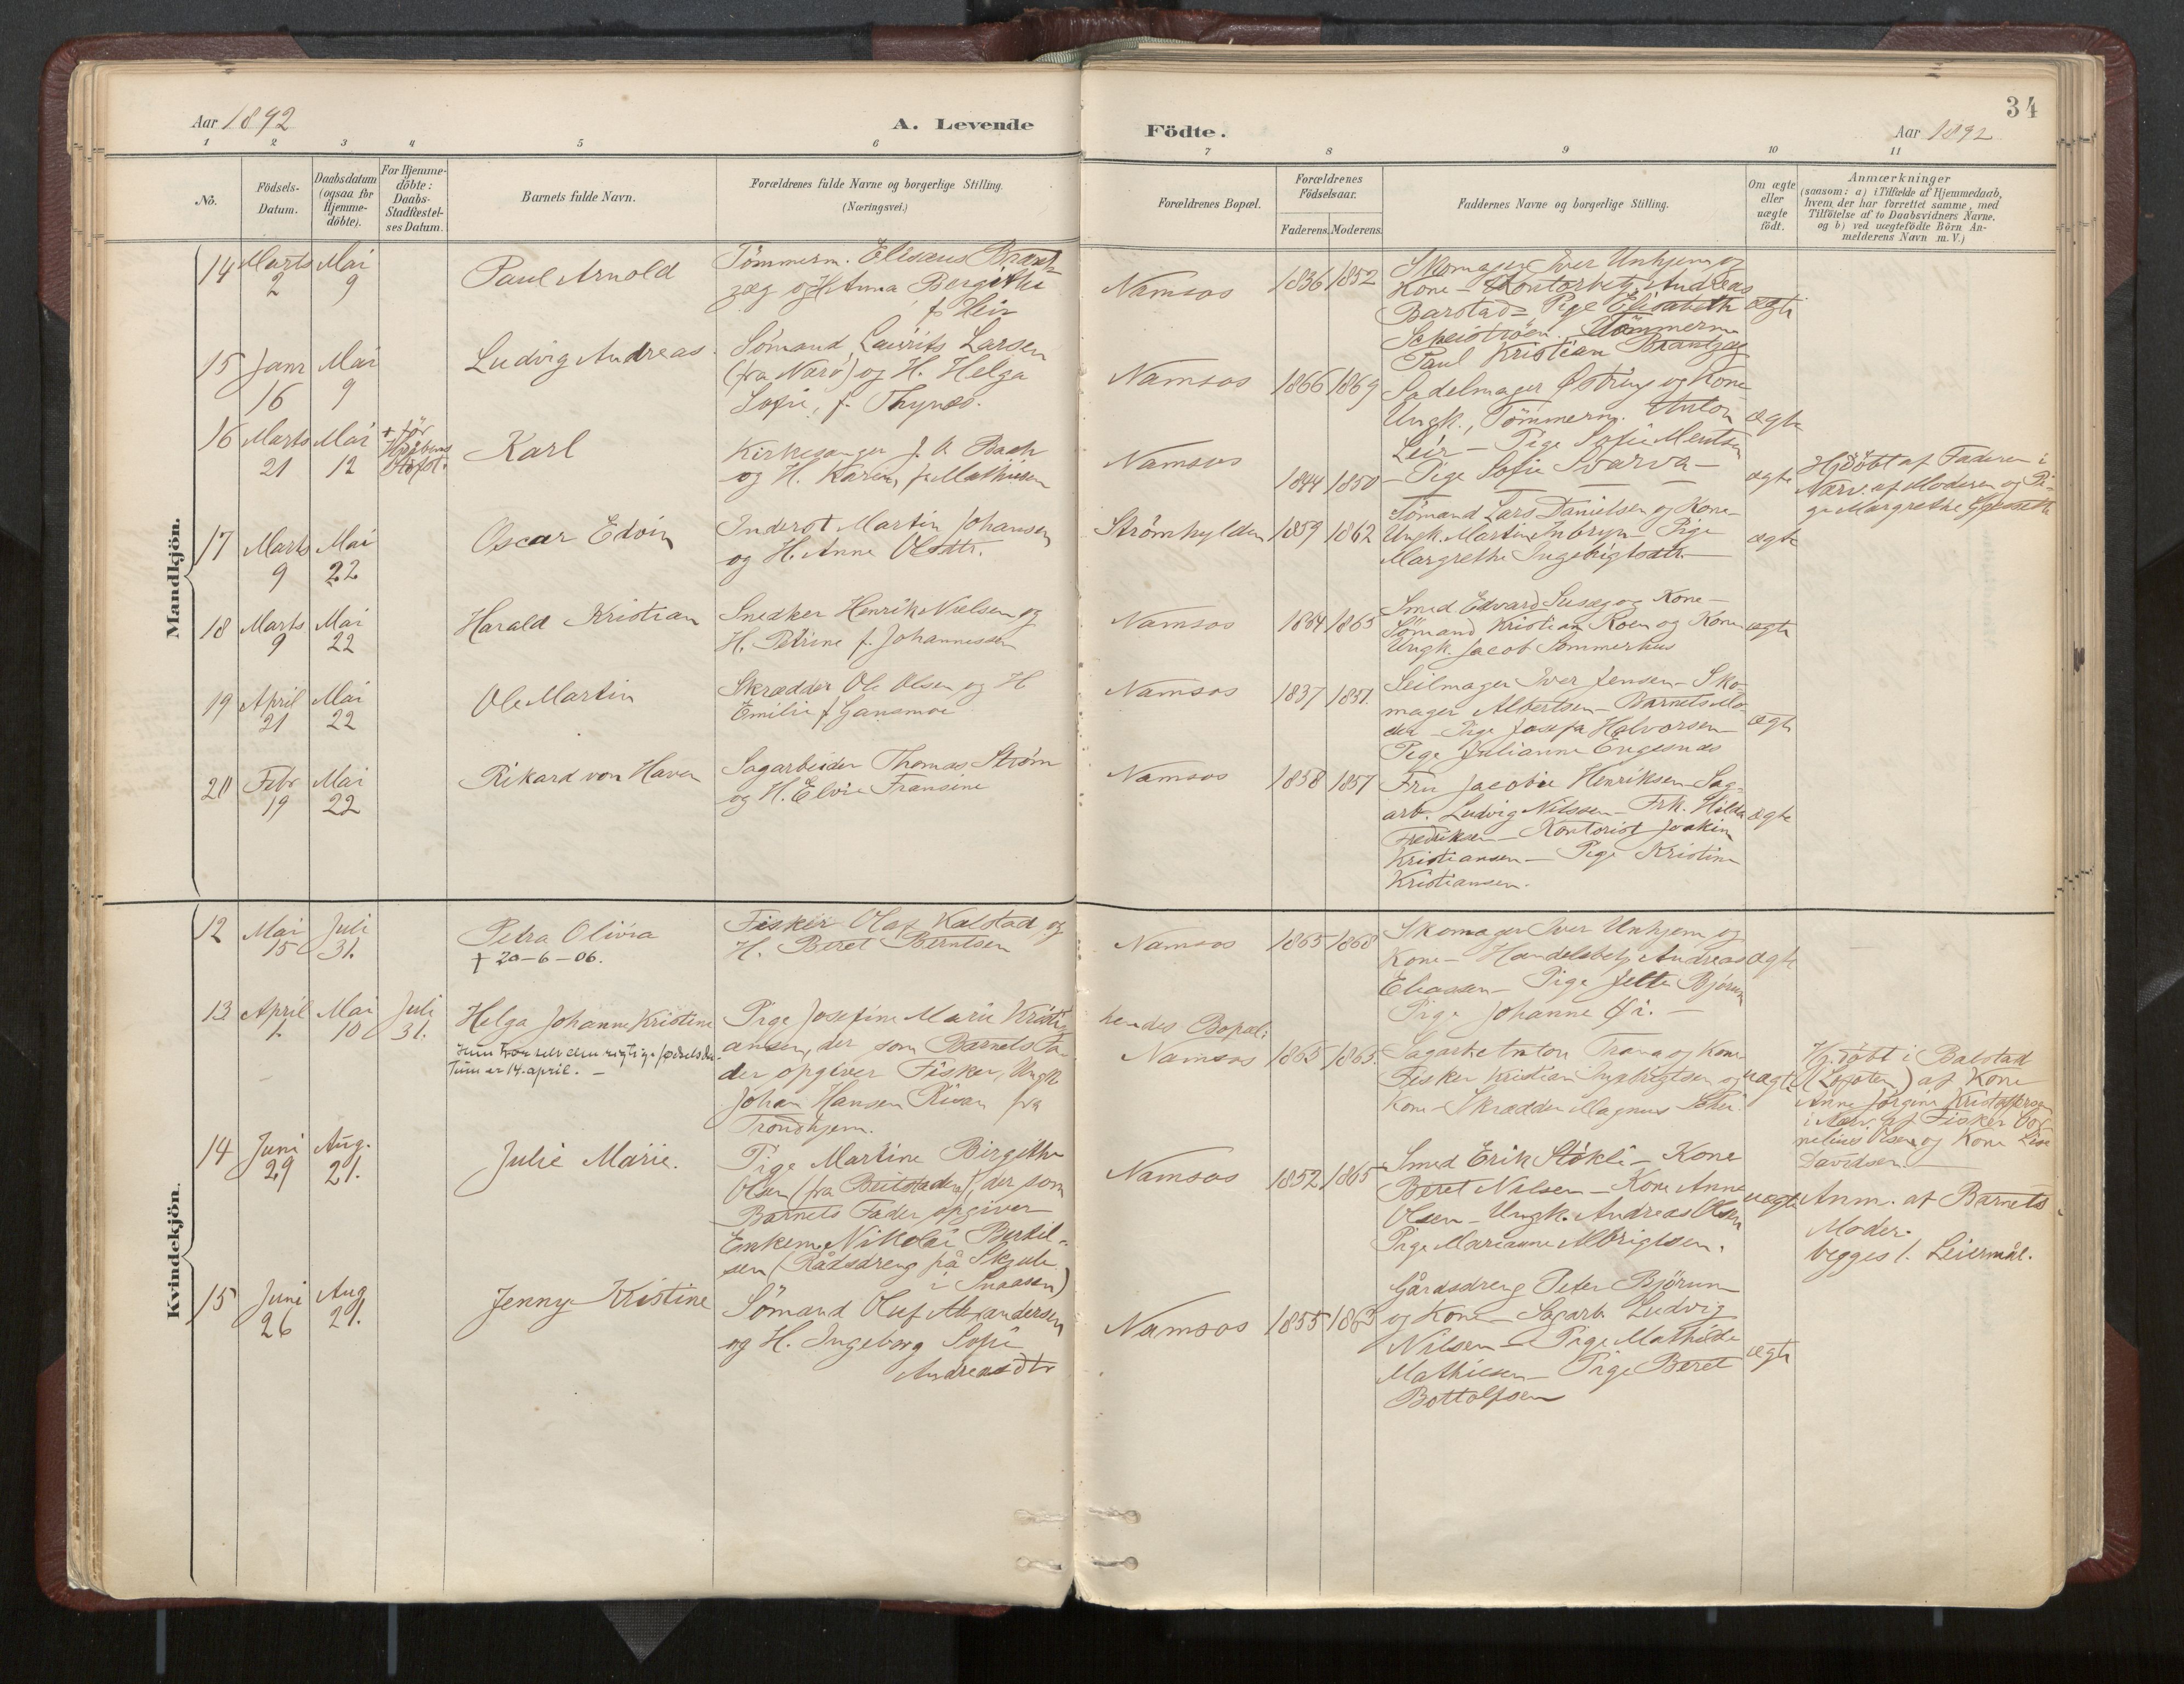 Aar 1892
A. Levende
Födte.
Aar 1892
34
1 2 3 4 5 6 7 8 9 10 11
No.
Födsels-
Datum.
Daabsdatum
(ogsaa for
Hjemme-
döbte).
For Hjemme-
döbte:
Daabs-
Stadfæstel-
ses Datum.
Barnets fulde Navn.
Forældrenes fulde Navne og borgerlige Stilling.
(Næringsvei.)
Forældrenes Bopæl.
Forældrenes
Födselsaar.
Faderens. Moderens.
Faddernes Navne og borgerlige Stilling.
Om ægte
eller
uægte
födt.
Anmærkninger
(saasom: a) i Tilfælde af Hjemmedaab,
hvem der har forrettet samme, med
Tilföielse af to Daabsvidners Navne.
og b) ved uægtefödte Börn An-
melderens Navn m. V.)
Mandkjön.
14 Marts 2 Mai 9
Paul Arnold
Tömmerm. Eliseus Brant-
zæg og H. Anna Bergithe
f. Leir
Namsos
1836 1852
Skomager Iver Unhjem og
Kone - Kontorbetj. Andreas
Barstad - Pige Elisabeth
Scheistrøen - Tömmerm.
Paul Kristian Brantzæg
ægte
15 Janr 16 Mai 9
Ludvig Andreas
Sömand Laurits Larsen
(fra Nærö) og H. Helga
Sofie, f. Thynes.
Namsos
1866 1869
Sadelmager Østring og Kone
Ungk., Tömmerm. Anton
Leir - Pige Sofie Mentsen
- Pige Sofie Svarva -
ægte
16 Marts 21 Mai 12
+ för
Karl
Kirkesanger J. A. Bach
og H. Karen, f. Mathisen
Namsos
1844 1850
ægte
Hj.döbt af Faderen i
Nærv. af Moderen og Pi-
ge Margrethe
17 Marts 9 Mai 22
Oscar Edvin
Inderst Martin Johansen
og H. Anne Olsdtr.
Strömhylden
1859 1862
Sömand Lars Danielsen og Kone -
Ungk. Martin - Pige
Margrethe Ingebrigtsdtr. -
ægte
18 Marts 9 Mai 22
Harald Kristian
Snedker Henrik Nielsen og
H. Petrine f. Johannessen
Namsos
1864 1865
Smed Edvard Susæg og Kone -
Sömand Kristian Roen og Kone
Ungk. Jacob Sommerhus
ægte
19 April 21 Mai 22
Ole Martin
Skrædder Ole Olsen og H
Emilie f. Gansmoe
Namsos
1837 1851.
Seilmager Iver Jensen - Sko-
mager Albertsen - Barnets Mo-
der - Pige Josefa Halvorsen
Pige Julianne Engesnæs
ægte
20 Febr 19 Mai 22
Rikard von Haven
Sagarbeider Thomas Ström
og H. Elvie Fransine
Namsos
1858 1857
Fru Jacobie Henriksen - Sag-
arb. Ludvig Nilssen - Frk. Hilda
Fredriksen - Kontorist Joakim
Kristiansen - Pige Kristine
Kristiansen.
ægte
Kvindekjön.
12 Mai 15 Juli 31.
Petra Olivia
† 20-6-06.
Fisker Olaf Kalstad og
H. Beret Berntsen
Namsos
1865 1868
Skomager Iver Unhjem og
Kone - Handelsbetj. Andreas
Eliassen - Pige Jette Bjørum
Pige Johanne Öi. -
ægte
13 April 1. Mai 10 Juli 31.
Helga Johanne Kristine
rigtige födselsda-
tum er 14. april. -
Pige Josefine Marie Kristi-
ansen, der som Barnets Fa-
der opgiver Fisker, Ungk.
Johan Hansen Risan fra
Trondhjem.
hendes Bopæl:
Namsos
1865 1865.
Sagarb. Anton Trana og Kone
Fisker Kristian Ingebrigtsen og
Kone - Skrædder Magnus
uægte
Hj. döbt i Balstad
(Lofoten) af Kone
Anne Jörgine Kristoffersen
i Nærv. af Fisker Cor-
nelius Olsen og Kone Lise
Davidsen. -
14 Juni 29 Aug. 21.
Julie Marie.
Pige Martine Birgitte
Olsen (fra Beitstaden), der som
Barnets Fader opgiver
Enkem. Nikolai Bertil-
sen (Rådsdreng på
i Snaasen)
Namsos
1852 1865
Smed Erik Stökli - Kone
Beret Nilsen - Kone Anne
Olsen - Ungk. Andreas Olsen
Pige Marianne Albrigtsen.
uægte
Anm. af Barnets
Moder.
begges 1. Leiermål.
15 Juni 26 Aug 21.
Jenny Kristine
Sömand Oluf Alexandersen
og H. Ingeborg Sofie
Andreasdtr
Namsos
1855 1863
Gårdsdreng Peter Bjørum
og Kone - Sagarb. Ludvig
Nilsen - Pige Mathilde
Mathiesen - Pige Beret
Bottolfsen
ægte